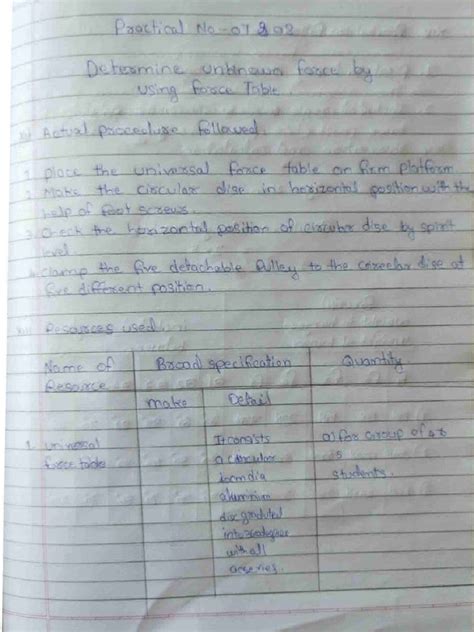 Practical No-07 & 08
Determine unknown force by
using force Table.
Actual procedure followed.
1. place the universal force table on firm platform
2. Make the circular disc in horizontal position with the
help of foot screws.
3. Check the horizontal position of circular disc by spirit
level.
4. Clamp the five detachable Pulley to the circular disc at
five different position.
Resources used
Name of Resorce
Broad specification
Quantity
make
Detail
1. universal
force table
It consists
a circular
dia
disc graduted
with all
a) for Group of
students.